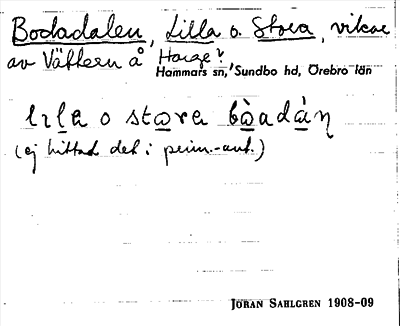 Bodadalen, Lilla o. Stora, vikar
av Vättern å Harge?
Hammars sn, Sundbo hd, Örebro län
lɩla o stora bòadáŋ
(ej hittad det i prim.-ant.)
JÖRAN SAHLGREN 1908-09